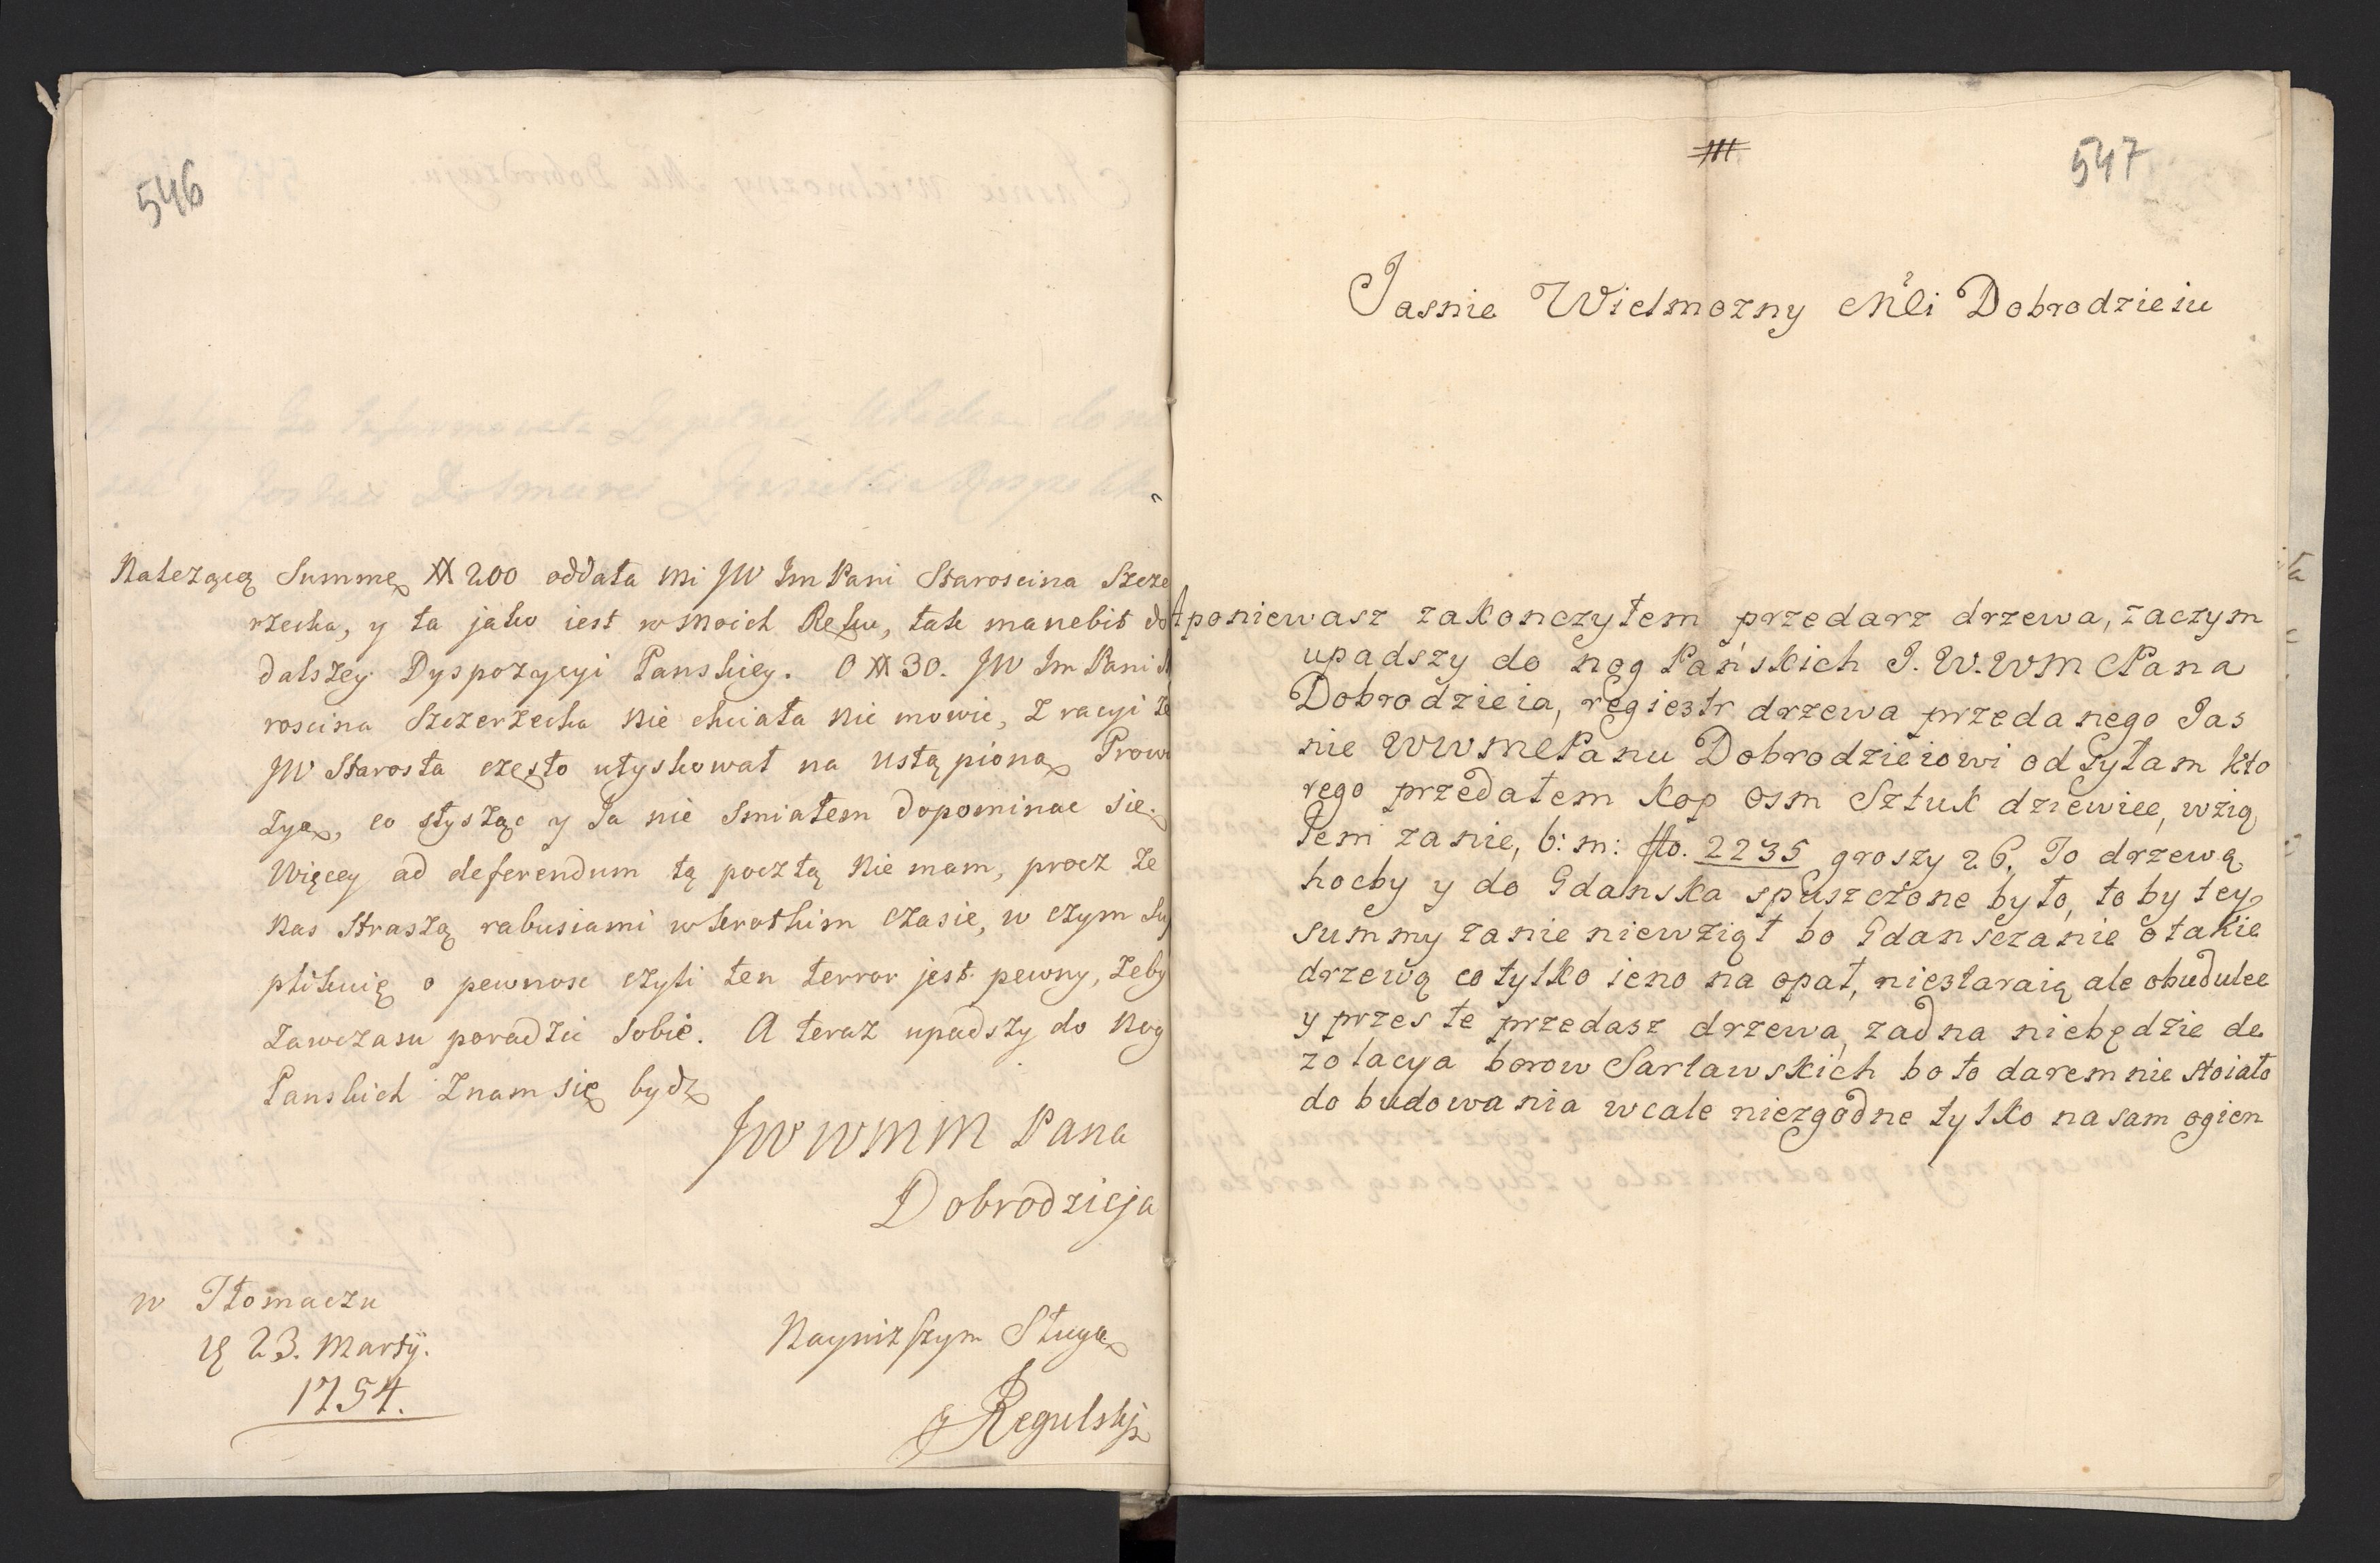 546
Należącą Summę # 200 oddała mi JW Im Pani Starościna Szcze
rzecka, y ta jako iest w moich Ręku, tak manebit do
dalszey Dyspozycyi Panskiey. O # 30. JW Im Pani
rościna Szczerzecka nie chciała nic mowic, z racyi że
JW Starosta często utyskował na ustąpioną Prowi
zyę, co słysząc y Ja nie smiałem dopominac się.
Więcey ad deferendum tą pocztą nie mam, procz że
nas straszą rabusiami w krotkim czasie, w czym su
plikuię o pewnosc czyli ten terror jest pewny, żeby
zawczasu poradzic sobie. A teraz upadszy do Nog
Panskich znam się bydz
JW WMM Pana
Dobrodzieja
w Tłomaczu
23. Martij.
1754.
Nayniższym Sługą
J Regulskj
547
Jasnie Wielmozny Mci Dobrodzieiu
Aponiewasz zakonczyłem przedarz drzewa, zaczym
upadszy do nog Pańskich J. W. WM Pana
Dobrodzieia, regiestr drzewa przedanego Jas
nie WWMPanu Dobrodzieiowi odsyłam kto
rego przedałem kop osm Sztuk dziewiec, wzią
łem zanie, b: m: flo. 2235 groszy 26. To drzewą
hocby y do Gdanska spuszczone było, to by tey
summy zanie niewziął bo Gdansczanie o takie
drzewą co tylko ieno na opał, niestaraią ale obudulec
y przes te przedasz drzewa, zadna niebędzie de
zolacya borow Sarławskich bo to daremnie stoiało
do budowania wcale niezgodne tylko na sam ogien